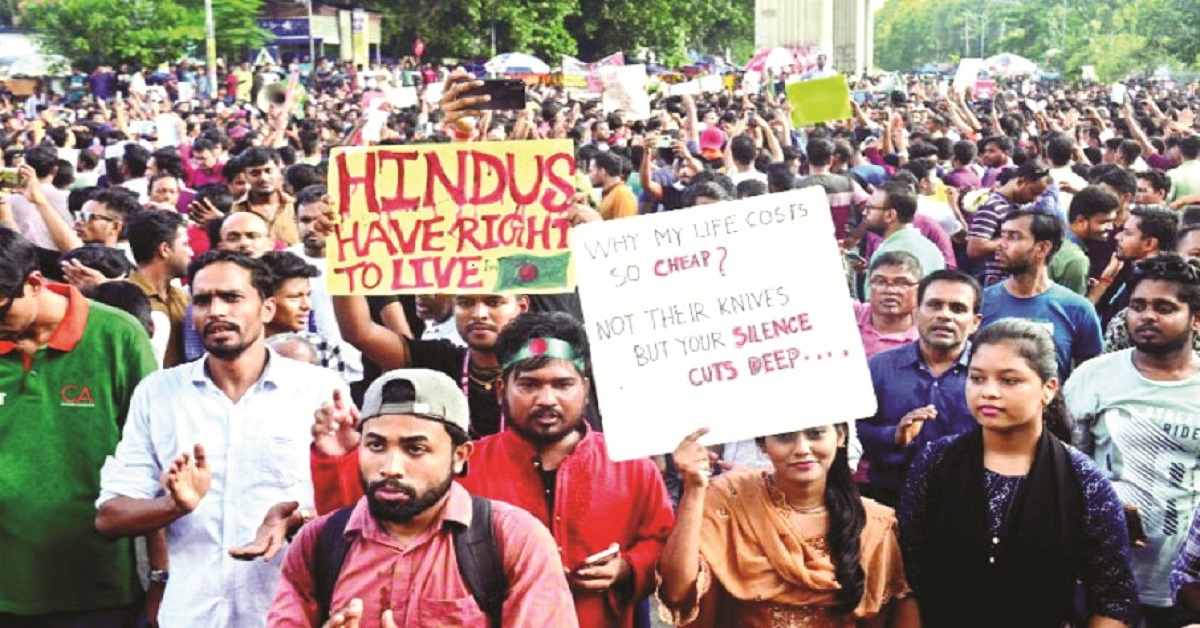 HINDUS
HAVE RIGHT
TO LIVE In
WHY MY LIFE COSTS
SO CHEAP?
NOT THEIR KNIVES
BUT YOUR SILENCE
CUTS DEEP....
CA
RIDE